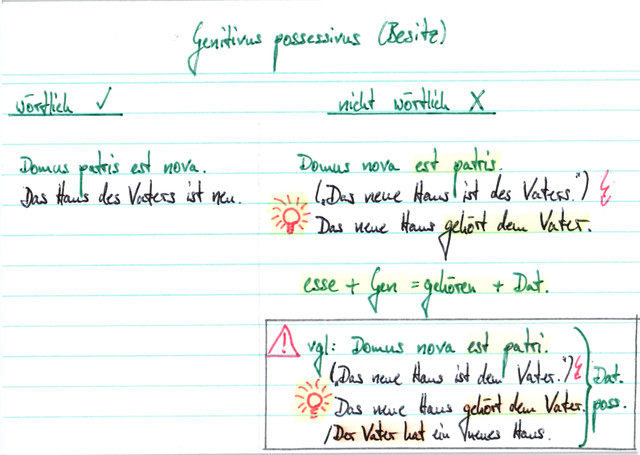 Genitivus possessivus (Besitz)
wörtlich ✓
Domus patris est nova.
Das Haus des Vaters ist neu.
nicht wörtlich X
Domus nova est patris.
(„Das neue Haus ist des Vaters.")
Das neue Haus gehört dem Vater.
esse + Gen = gehören + Dat.
vgl: Domus nova est patri.
(„Das neue Haus ist dem Vater.")
Das neue Haus gehört dem Vater.
/Der Vater hat ein neues Haus.
Dat.
poss.